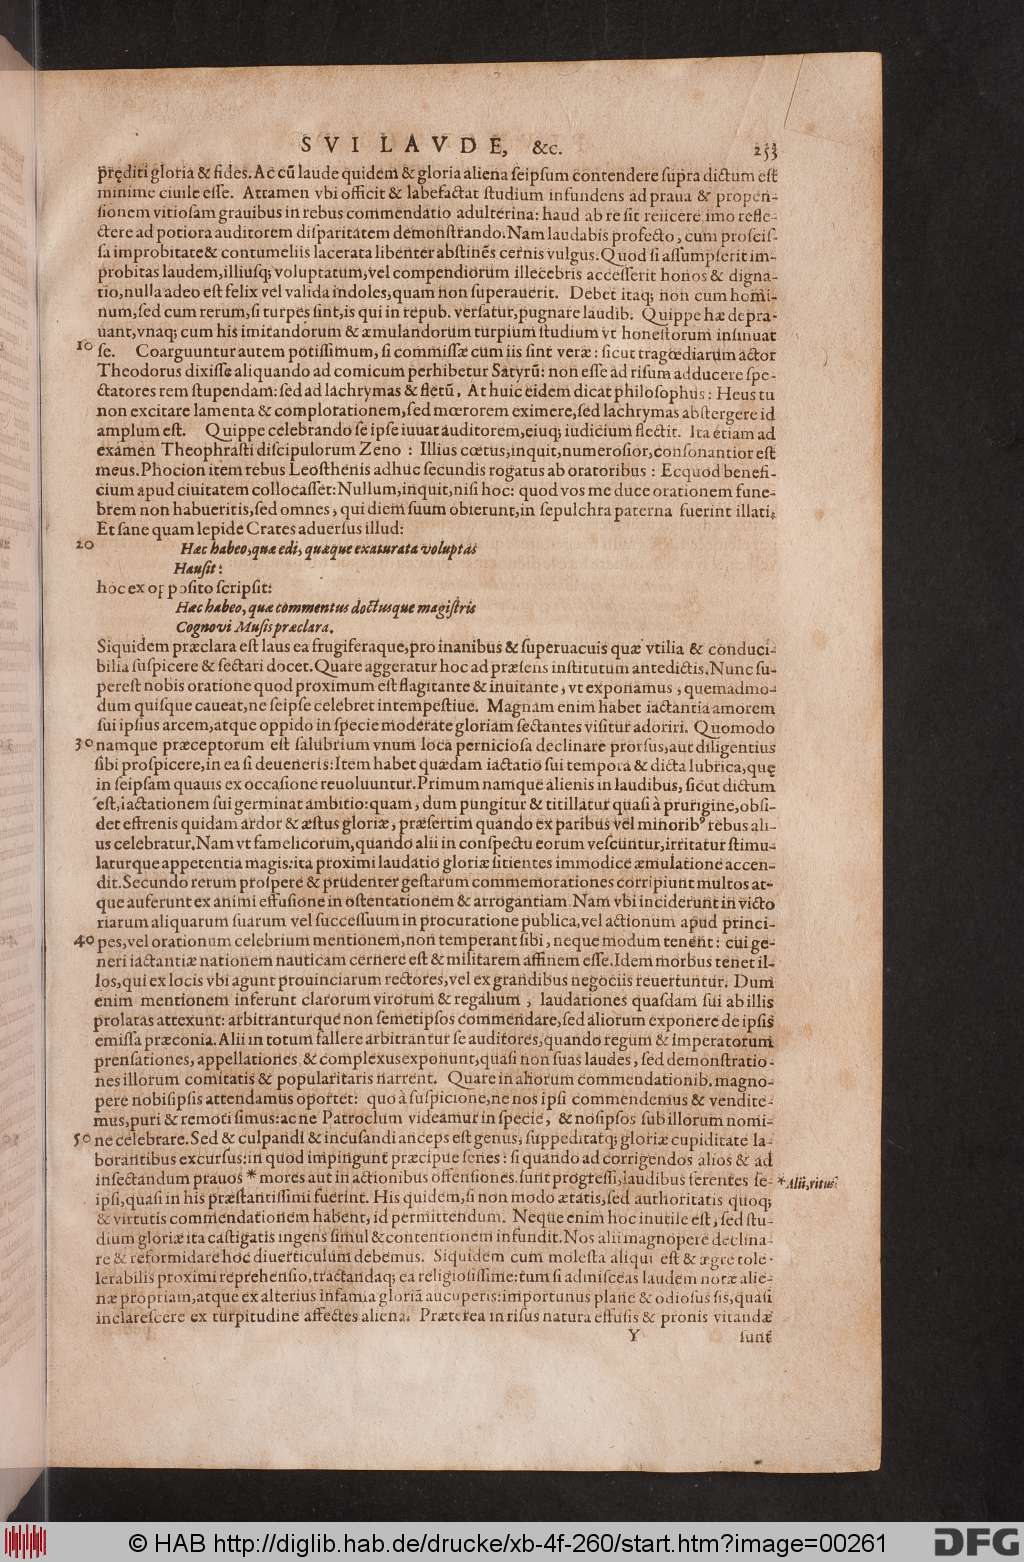 SVI LAVDE, &c. 253
pręditi gloria & fides. Ac cũ laude quidem & gloria aliena seipsum contendere supra dictum est
minime ciuile esse. Attamen vbi officit & labefactat studium infundens ad praua & propen-
sionem vitiosam grauibus in rebus commendatio adulterina: haud ab re sit reiicere imo refle-
ctere ad potiora auditorem disparitatem demonstrando. Nam laudabis profecto, cum proscis-
sa improbitate & contumeliis lacerata libenter abstinẽs cernis vulgus. Quod si assumpserit im-
probitas laudem, illiusq; voluptatum, vel compendiorum illecebris accesserit honos & digna-
tio, nulla adeo est felix vel valida indoles, quam non superauerit. Debet itaq; non cum homi-
num, sed cum rerum, si turpes sint, is qui in repub. versatur, pugnare laudib. Quippe hæ depra-
uant, vnaq; cum his imitandorum & æmulandorum turpium studium vt honestorum insinuat
10 se. Coarguuntur autem potissimum, si commissæ cum iis sint veræ: sicut tragœdiarum actor
Theodorus dixisse aliquando ad comicum perhibetur Satyrũ: non esse ad risum adducere spe-
ctatores rem stupendam: sed ad lachrymas & fletũ. At huic eidem dicat philosophus: Heus tu
non excitare lamenta & complorationem, sed mœrorem eximere, sed lachrymas abstergere id
amplum est. Quippe celebrando se ipse iuuat auditorem, eiuq; iudicium flectit. Ita etiam ad
examen Theophrasti discipulorum Zeno: Illius cœtus, inquit, numerosior, consonantior est
meus. Phocion item rebus Leosthenis adhuc secundis rogatus ab oratoribus: Ecquod benefi-
cium apud ciuitatem collocasset: Nullum, inquit, nisi hoc: quod vos me duce orationem fune-
brem non habueritis, sed omnes, qui diem suum obierunt, in sepulchra paterna fuerint illati.
Et sane quam lepide Crates aduersus illud:
20 Hæc habeo, quæ edi, quæque exaturata voluptas
Hausit:
hoc ex opposito scripsit:
Hæc habeo, quæ commentus doctusque magistris
Cognovi Musis præclara.
Siquidem præclara est laus ea frugiferaque, pro inanibus & superuacuis quæ vtilia & conduci-
bilia suspicere & sectari docet. Quare aggeratur hoc ad præsens institutum antedictis. Nunc su-
perest nobis oratione quod proximum est flagitante & inuitante, vt exponamus, quemadmo-
dum quisque caueat, ne seipse celebret intempestiue. Magnam enim habet iactantia amorem
sui ipsius arcem, atque oppido in specie moderate gloriam sectantes visitur adoriri. Quomodo
30 namque præceptorum est salubrium vnum loca perniciosa declinare prorsus, aut diligentius
sibi prospicere, in ea si deueneris: Item habet quædam iactatio sui tempora & dicta lubrica, quę
in seipsam quauis ex occasione reuoluuntur. Primum namque alienis in laudibus, sicut dictum
est, iactationem sui germinat ambitio: quam, dum pungitur & titillatur quasi à prurigine, obsi-
det effrenis quidam ardor & æstus gloriæ, præsertim quando ex paribus vel minorib⁹ rebus ali-
us celebratur. Nam vt famelicorum, quando alii in conspectu eorum vescuntur, irritatur stimu-
laturque appetentia magis: ita proximi laudatio gloriæ sitientes immodice æmulatione accen-
dit. Secundo rerum prospere & prudenter gestarum commemorationes corripiunt multos at-
que auferunt ex animi effusione in ostentationem & arrogantiam. Nam vbi inciderunt in victo
riarum aliquarum suarum vel successuum in procuratione publica, vel actionum apud princi-
40 pes, vel orationum celebrium mentionem, non temperant sibi, neque modum tenent: cui ge-
neri iactantiæ nationem nauticam cernere est & militarem affinem esse. Idem morbus tenet il-
los, qui ex locis vbi agunt prouinciarum rectores, vel ex grandibus negociis reuertuntur. Dum
enim mentionem inferunt clarorum virorum & regalium, laudationes quasdam sui ab illis
prolatas attexunt: arbitranturque non semetipsos commendare, sed aliorum exponere de ipsis
emissa præconia. Alii in totum fallere arbitrantur se auditores, quando regum & Imperatorum
prensationes, appellationes & complexus exponunt, quasi non suas laudes, sed demonstratio-
nes illorum comitatis & popularitatis narrent. Quare in aliorum commendationib. magno-
pere nobis ipsis attendamus oportet: quo à suspicione, ne nos ipsi commendemus & vendite-
mus, puri & remotissimus: ac ne Patroclum videamur in specie, & nosipsos sub illorum nomi-
50 ne celebrare. Sed & culpandi & incusandi anceps est genus, suppeditatq; gloriæ cupiditate la-
borantibus excursus: in quod impingunt præcipue senes: si quando ad corrigendos alios & ad
insectandum prauos * mores aut in actionibus offensiones sunt progressi, laudibus ferentes se- * Alii, ritus.
ipsi, quasi in his præstantissimi fuerint. His quidem, si non modo ætatis, sed authoritatis quoq;
& virtutis commendationem habent, id permittendum. Neque enim hoc inutile est, sed stu-
dium gloriæ ita castigatis ingens simul & contentionem infundit. Nos alii magnopere declina-
re & reformidare hoc diuerticulum debemus. Siquidem cum molesta aliqui est & ægre tole-
lerabilis proximi reprehensio, tractandaq; ea religiosissime: tum si admisceas laudem notæ alie-
næ propriam, atque ex alterius infamia gloriã aucuperis: importunus plane & odiosus sis, quasi
inclarescere ex turpitudine affectes aliena. Præterea in risus natura effusis & pronis vitandæ
Y sunt
© HAB http://diglib.hab.de/drucke/xb-4f-260/start.htm?image=00261 DFG